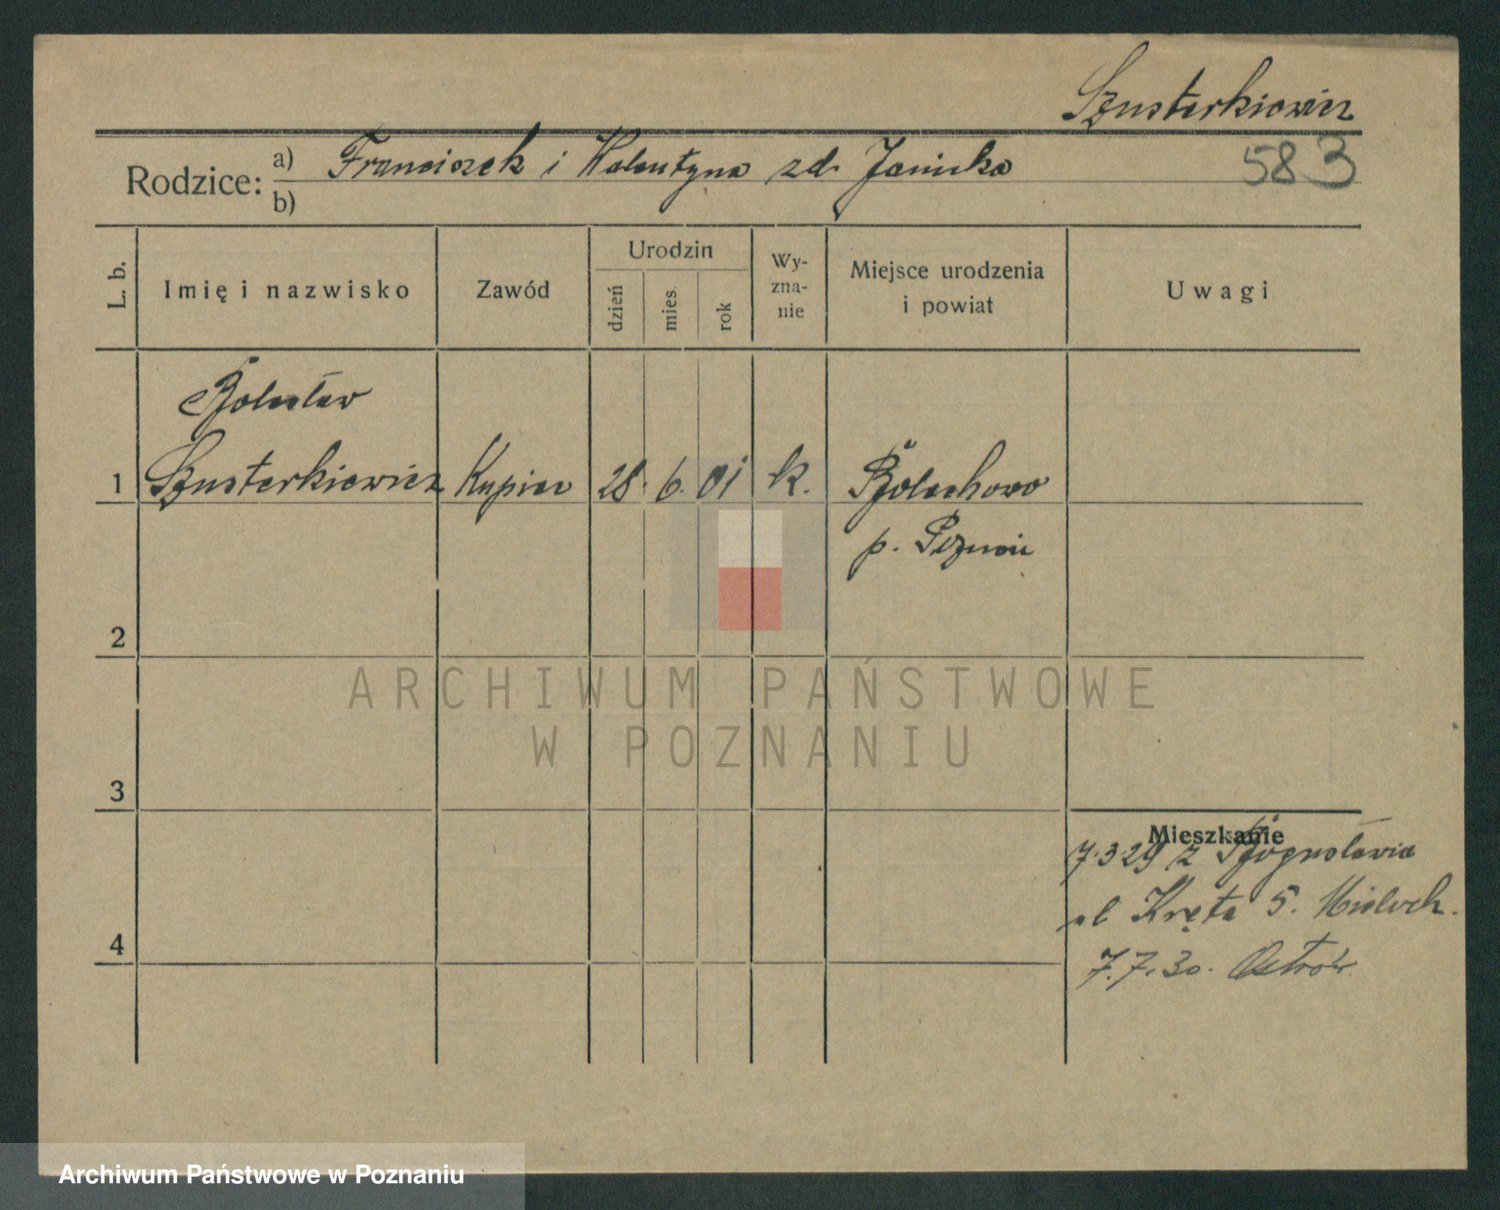 Szusterkiewicz
583
Rodzice: a) Franciszek i Walentyna zd. Janicka
b)
L. b.
Imię i nazwisko
Zawód
Urodzin
dzień
mies.
rok
Wy-
zna-
nie
Miejsce urodzenia
i powiat
Uwagi
Bolesław
1 Szusterkiewicz Kupiec 28. 6. 01 k. Bolechowo
p. Poznań
2
3
4
Mieszkanie
7.3.29 z Bogusławia
ul Kręta 5.
7.7.30. Ostrów
ARCHIWUM PAŃSTWOWE
W POZNANIU
Archiwum Państwowe w Poznaniu